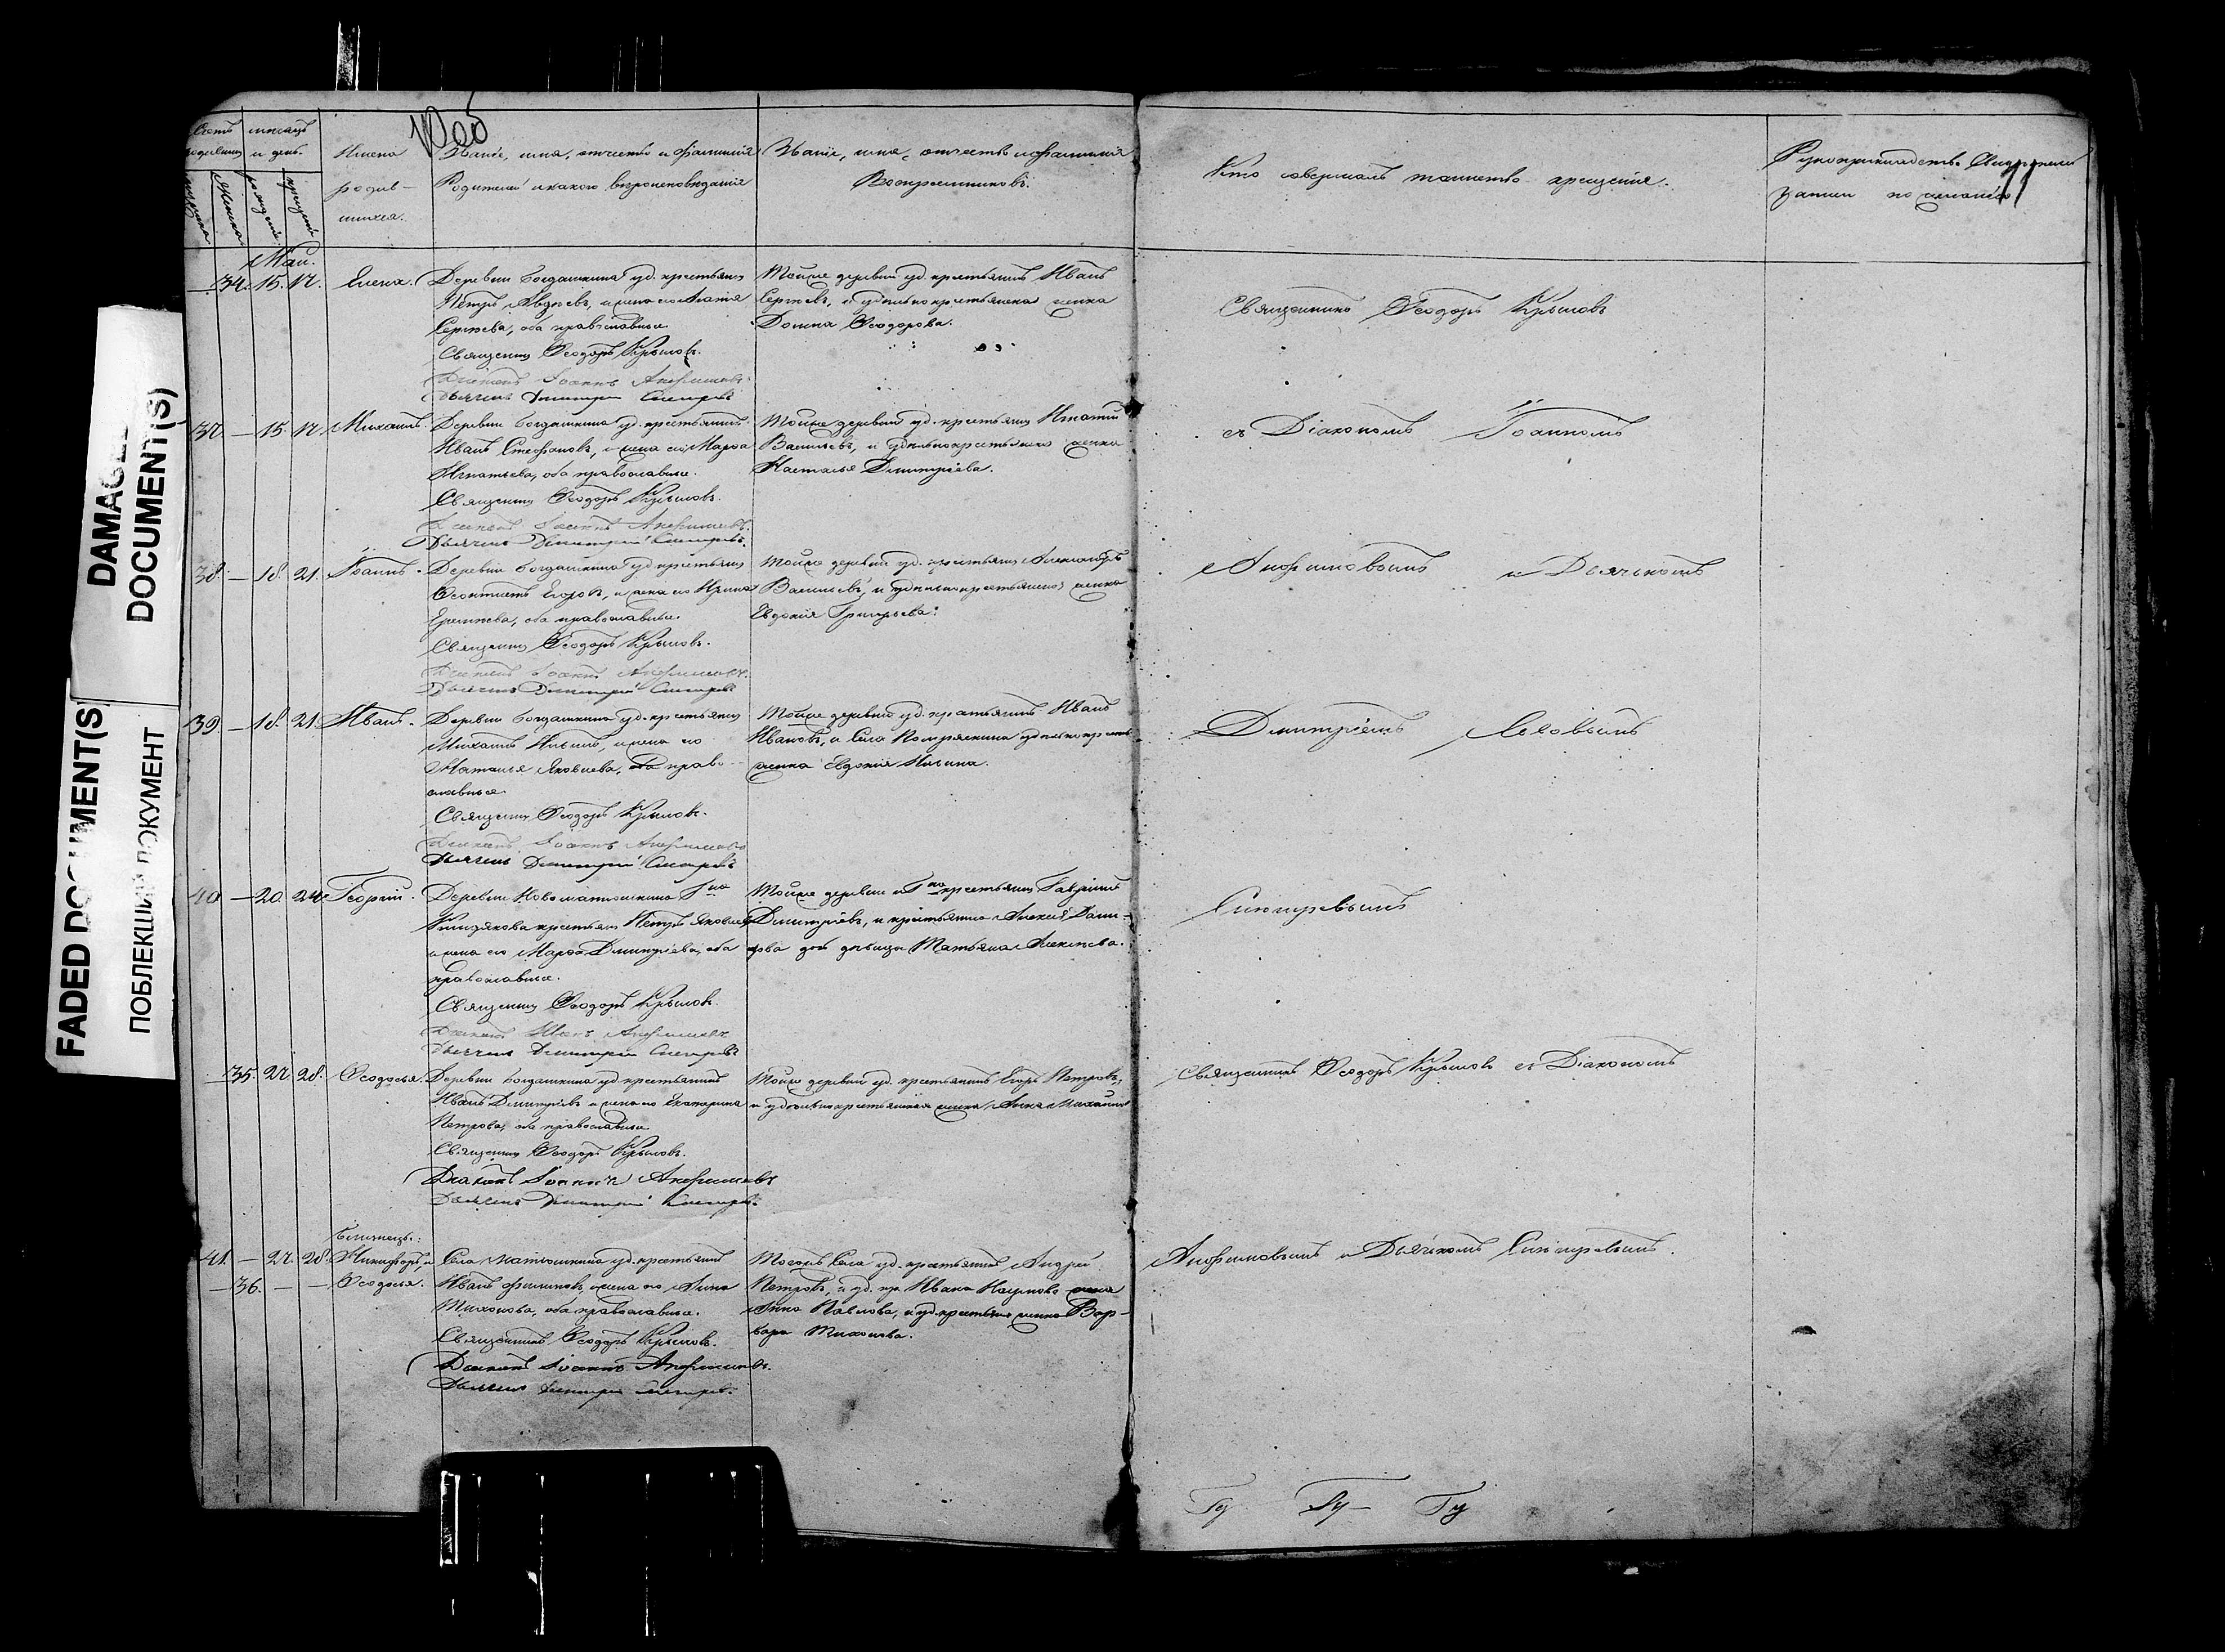 DAMAGED
DOCUMENT(S)
FADED DOCUMENT(S)
ПОБЛЕКШИЙ ДОКУМЕНТ
Счетъ родившихся
мѣсяцъ и день
рожденія
крещенія
Имена родив-
шихся.
Званіе, имя, отчество и фамилія
Родителей и какого вѣроисповѣданія
Званіе, имя, отчество и фамилія
Воспріемниковъ.
Кто совершалъ таинство крещенія.
Рукоприкладство свидѣтелей
записи по желанію
Маи.
34. 15. 17. Елена.
Деревни Богдашкина уд. крестьянинъ
Петръ Авдѣевъ, и жена его Агаѳія
Сергѣева, оба православные
Священникъ Ѳеодоръ Крыловъ.
Діаконъ Іоаннъ Анфимовъ
Дьячекъ Димитрій
Тойже деревни уд. крестьянинъ Иванъ
Сергѣевъ, и удѣльнокрестьянская женка
Домна Ѳеодорова.
Священникъ Ѳеодоръ Крыловъ
37 — 15. 17. Михаилъ.
Деревни Богдашкина уд. крестьянинъ
Иванъ Стефановъ, и жена его Марѳа
Игнатьева, оба православные.
Священникъ Ѳеодоръ Крыловъ.
Діаконъ Іоаннъ Анфимовъ.
Дьячекъ Димитрій
Тойже деревни уд. крестьянинъ Игнатій
Васильевъ, и удѣльнокрестьянская женка
Наталья Димитріева.
съ Діакономъ Іоанномъ
38 — 18. 21. Іоаннъ.
Деревни Богдашкина уд. крестьянинъ
Ѳеоктистъ Егоровъ, и жена его Ирина
Ермолаева, оба православные.
Священникъ Ѳеодоръ Крыловъ.
Діаконъ Іоаннъ Анфимовъ.
Дьячекъ Димитрій
Тойже деревни уд. крестьянинъ Александръ
Васильевъ, и удѣльнокрестьянская женка
Евдокія Григорьева.
Анфимовымъ и Дьячкомъ
39 — 18. 21. Иванъ.
Деревни Богдашкина уд. крестьянинъ
Михаилъ Ильинъ, и жена его
Наталья Яковлева, оба право-
славные.
Священникъ Ѳеодоръ Крыловъ.
Діаконъ Іоаннъ Анфимовъ
Дьячекъ Димитрій
Тойже деревни уд. крестьянинъ Иванъ
Ивановъ, и Села удѣльнокрестьян
женка Евдокія Ильина.
Димитріемъ
40 — 20. 24. Георгій.
Деревни Новоматюшкина Г-на
крестьянинъ Петръ Яковлевъ
и жена его Марѳа Димитріева, оба
православные.
Священникъ Ѳеодоръ Крыловъ.
Діаконъ Иванъ Анфимовъ
Дьячекъ Димитрій
Тойже деревни и Г-на крестьянинъ Гавріилъ
Димитріевъ, и крестьянина Алексѣя
дочь дѣвица Татьяна Алексѣева.
35. 27. 28. Ѳеодосья.
Деревни Богдашкина уд. крестьянинъ
Иванъ Димитріевъ и жена его Екатерина
Петрова, оба православные
Священникъ Ѳеодоръ Крыловъ.
Діаконъ Іоаннъ Анфимовъ
Дьячекъ Димитрій
Тойже деревни уд. крестьянинъ Егоръ Петровъ,
и удѣльнокрестьянская женка Анна Михайлова
Священникъ Ѳеодоръ Крыловъ съ Діакономъ
Близнецы:
41. — 27. 28. Никифоръ, и
— 36. — — Ѳеодосья.
Села Матюшкина уд. крестьянинъ
Иванъ Филиповъ, и жена его Анна
Тихонова, оба православные.
Священникъ Ѳеодоръ Крыловъ.
Діаконъ Іоаннъ Анфимовъ.
Дьячекъ Димитрій
Тогожъ Села уд. крестьянинъ Андрей
Петровъ, и уд. кр. Ивана Наумова жена
Анна Павлова, и уд. крестьян женка Вар-
вара Тихонова.
Анфимовымъ и Дьячкомъ